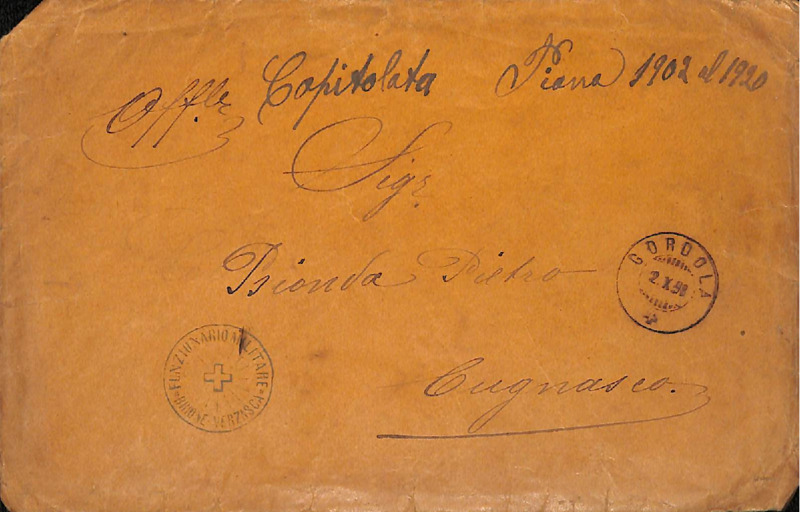 Capitolata Piana 1902 al 1920
Sigr
Bionda Pietro
GORDOLA
2.X.9
FUNZIONARIO MILITARE
VERZASCA
Cugnasco.